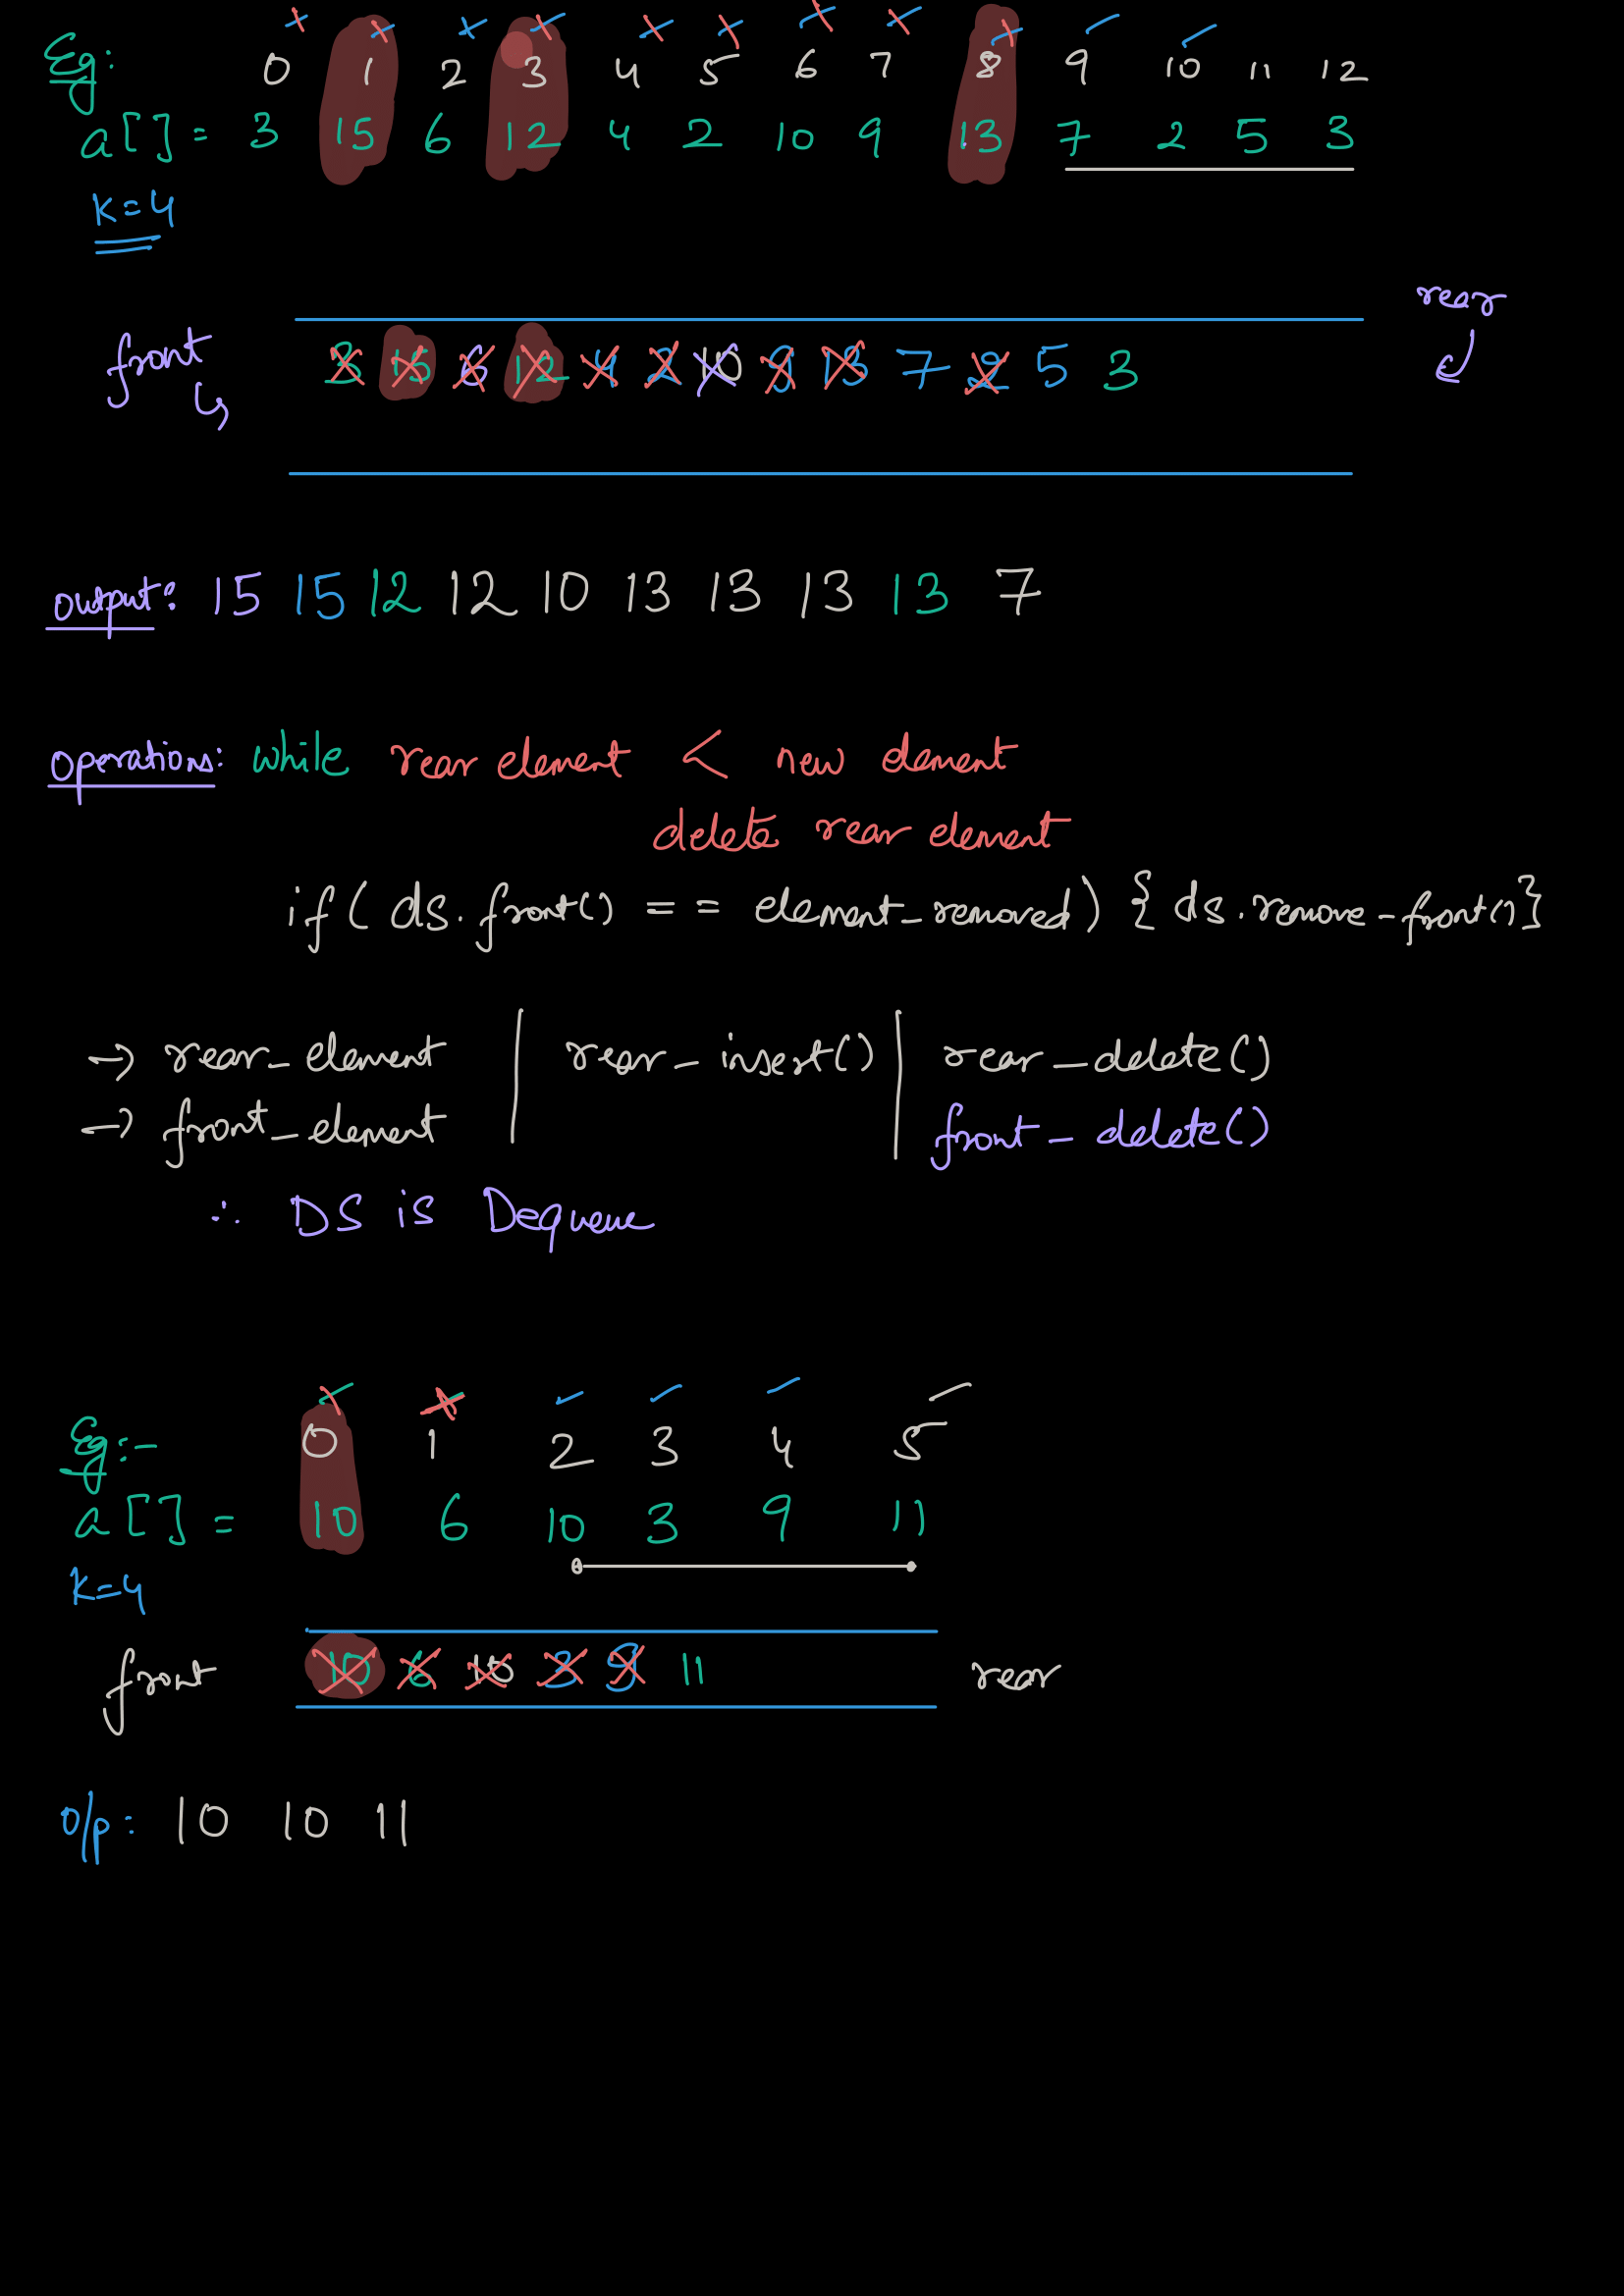 Eg: 0 1 2 3 4 5 6 7 8 9 10 11 12
a[] = 3 15 6 12 4 2 10 9 13 7 2 5 3
k=4
rear
front 3 15 6 12 4 2 10 9 13 7 2 5 3
output: 15 15 12 12 10 13 13 13 13 7
operations: while rear element < new element
delete rear element
if ( ds.front() == element_removed) { ds.remove-front()}
→ rear_element | rear_insert() | rear_delete()
→ front_element front_delete()
∴ DS is Dequeue
Eg:- 0 1 2 3 4 5
a[] = 10 6 10 3 9 11
k=4
front 10 6 10 3 9 11 rear
o/p: 10 10 11